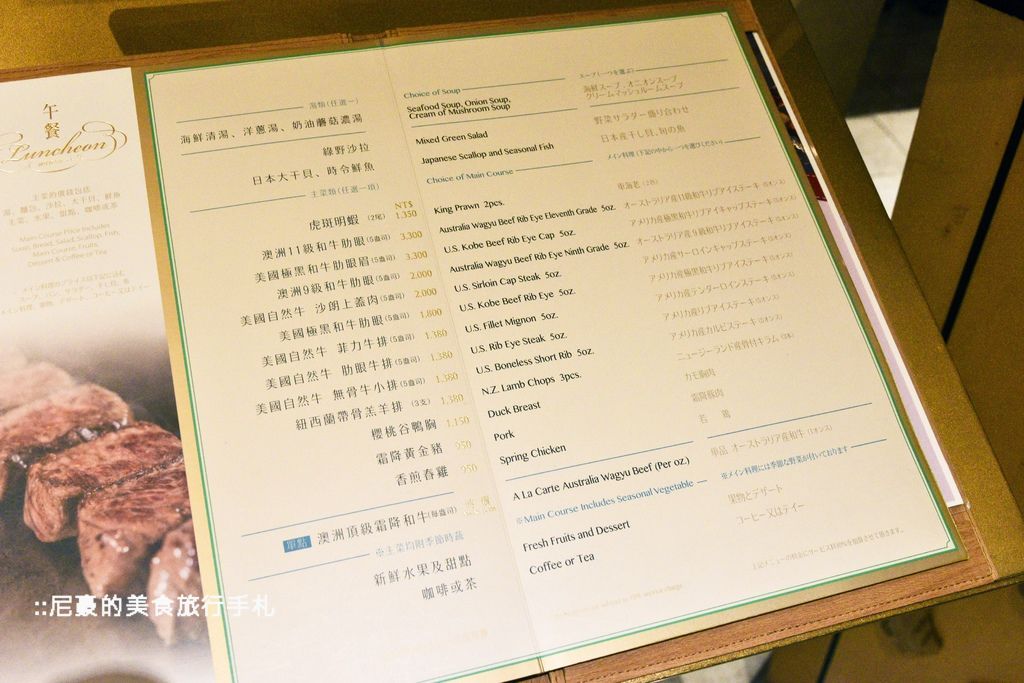 午餐
Luncheon
主菜的價錢包括
湯、麵包、沙拉、大干貝、鮮魚
主菜、水果、甜點、咖啡或茶
Main Course Price Includes
Soup, Bread, Salad, Scallop, Fish,
Main Course, Fruits,
Dessert & Coffee or Tea
湯類(任選一)
海鮮清湯、洋蔥湯、奶油蘑菇濃湯
綠野沙拉
日本大干貝、時令鮮魚
主菜類(任選一項)
NT$
虎斑明蝦 (2尾) 1,350
澳洲11級和牛肋眼(5盎司) 3,300
美國極黑和牛肋眼眉(5盎司) 3,300
澳洲9級和牛肋眼(5盎司) 2,000
美國自然牛 沙朗上蓋肉(5盎司) 2,000
美國極黑和牛肋眼(5盎司) 1,800
美國自然牛 菲力牛排(5盎司) 1,380
美國自然牛 肋眼牛排(5盎司) 1,380
美國自然牛 無骨牛小排(5盎司) 1,380
紐西蘭帶骨羔羊排 (3支) 1,380
櫻桃谷鴨胸 1,150
霜降黃金豬 950
香煎春雞 950
單點 澳洲頂級霜降和牛(每盎司)
※主菜均附季節時蔬
新鮮水果及甜點
咖啡或茶
Choice of Soup
Seafood Soup, Onion Soup,
Cream of Mushroom Soup
Mixed Green Salad
Japanese Scallop and Seasonal Fish
Choice of Main Course
King Prawn 2pcs.
Australia Wagyu Beef Rib Eye Eleventh Grade 5oz.
U.S. Kobe Beef Rib Eye Cap 5oz.
Australia Wagyu Beef Rib Eye Ninth Grade 5oz.
U.S. Sirloin Cap Steak 5oz.
U.S. Kobe Beef Rib Eye 5oz.
U.S. Fillet Mignon 5oz.
U.S. Rib Eye Steak 5oz.
U.S. Boneless Short Rib 5oz.
N.Z. Lamb Chops 3pcs.
Duck Breast
Pork
Spring Chicken
A La Carte Australia Wagyu Beef (Per oz.)
※Main Course Includes Seasonal Vegetable
Fresh Fruits and Dessert
Coffee or Tea
スープ(一つを選ぶ)
海鮮スープ、オニオンスープ
クリームマッシュルームスープ
野菜サラダー盛り合わせ
日本産干し貝、旬の魚
メイン料理(下記の中から一つを選びください)
車海老(2匹)
オーストラリア産11級和牛リブアイステーキ(5オンス)
アメリカ産極黒和牛リブアイキャップステーキ(5オンス)
オーストラリア産9級和牛リブアイステーキ(5オンス)
アメリカ産サーロインキャップステーキ(5オンス)
アメリカ産極黒和牛リブアイステーキ(5オンス)
アメリカ産テンダーロインステーキ(5オンス)
アメリカ産リブアイステーキ(5オンス)
アメリカ産カルビステーキ(5オンス)
ニュージーランド産骨付キラム(3本)
カモ胸肉
霜降豚肉
若 鶏
単品 オーストラリア産和牛(1オンス)
※メイン料理には季節な野菜が付いております
果物とデザート
コーヒー又はティー
::尼豪的美食旅行手札